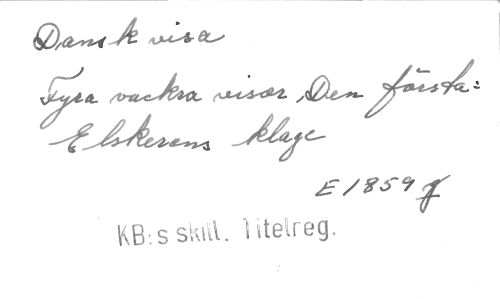 Dansk visa
Fyra vackra visor. Den första:
Elskerens klage
E 1859 g
KB:s skill. Titelreg.